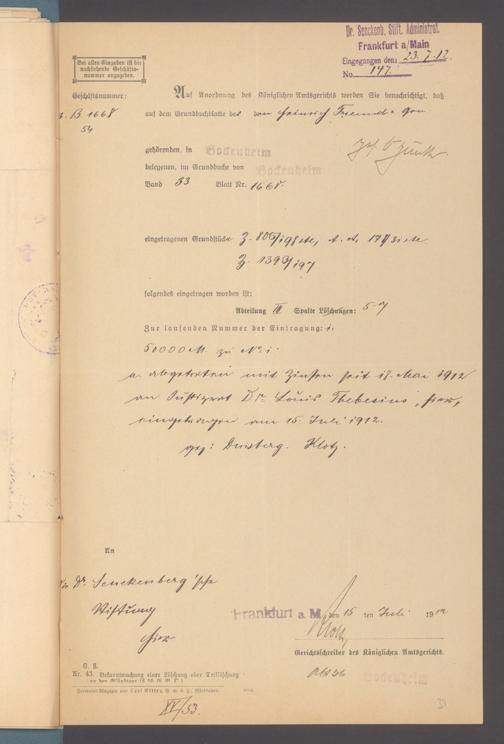 Dr. Senckenb. Stift. Administrat.
Frankfurt a/Main
Eingegangen den: 23.7.12
No. 147.
Bei allen Eingaben ist die
nachstehende Geschäfts-
nummer anzugeben.
Geschäftsnummer:
B 1668
54
Auf Anordnung des Königlichen Amtsgerichts werden Sie benachrichtigt, daß
auf dem Grundbuchblatte des Heinrich
gehörenden, in Bockenheim
belegenen, im Grundbuche von Bockenheim
Band 33 Blatt Nr. 1668.
eingetragenen Grundstück
folgendes eingetragen worden ist:
Abteilung III Spalte Löschungen: 5-7
Zur laufenden Nummer der Eintragung: 1.
50000 M. zu No. 1
a. abgetreten mit Zinsen seit 18. Mai 1912
an Justizrat Dr. Louis Thebesius, hier,
eingetragen am 15. Juli 1912.
gez: Duisberg. Klotz.
An
Dr. Senckenberg'sche
Stiftung
hier
Frankfurt a. M., den 15 ten Juli 1912
Klotz
Gerichtsschreiber des Königlichen Amtsgerichts.
Abt 36
Bockenheim
G. B.
Nr. 43. Bekanntmachung einer Löschung oder Teillöschung
an den Gläubiger
Formular-Magazin von Carl Ritter, G. m. b. H., Wiesbaden.
IV/53.